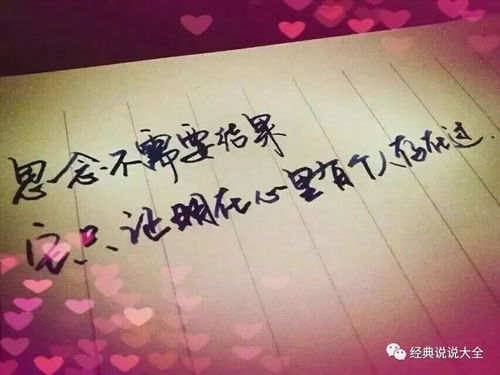 思念不需要结果
它只证明在心里有个人存在过.
经典说说大全